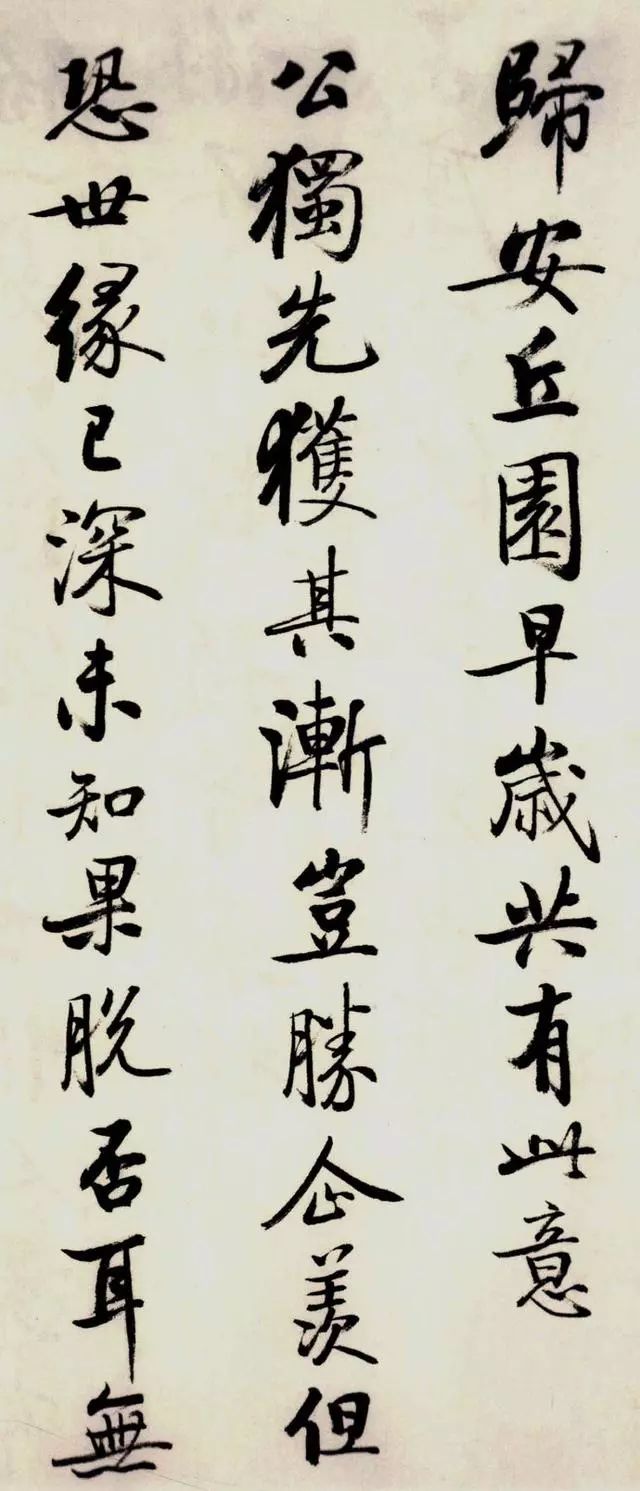 歸安丘園早歲共有此意
公獨先獲其漸豈勝企羨但
恐世緣已深未知果脫否耳無